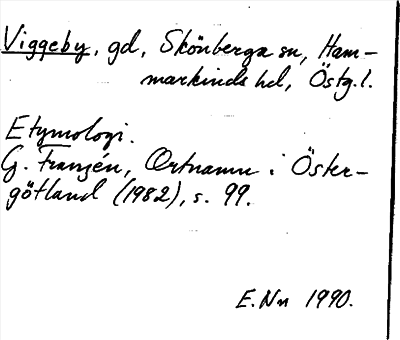 Viggeby, gd, Skönberga sn, Ham-
markinds hd, Östg.l.
Etymologi.
G. Franzén, Ortnamn i Öster-
götland (1982), s. 99.
E.Nn 1990.